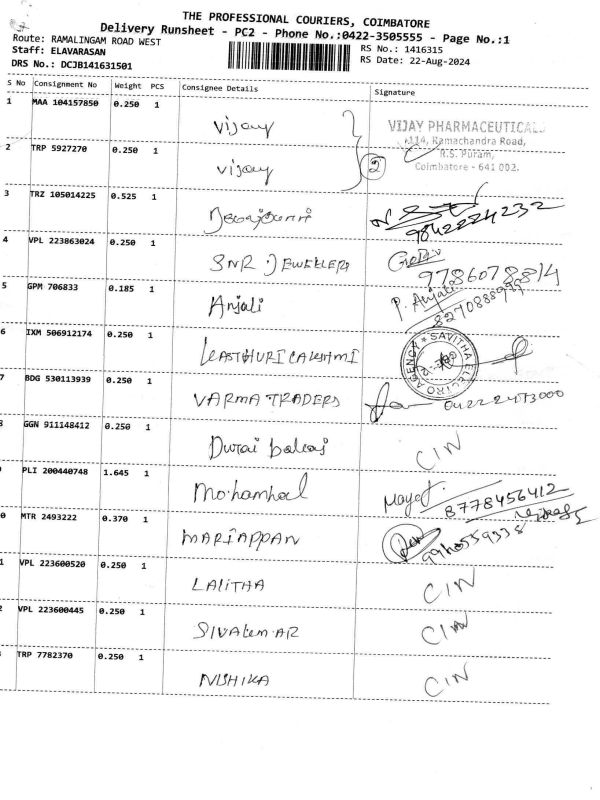 THE PROFESSIONAL COURIERS, COIMBATORE
Delivery Runsheet - PC2 - Phone No.:0422-3505555 - Page No.:1
Route: RAMALINGAM ROAD WEST
RS No.: 1416315
Staff: ELAVARASAN
RS Date: 22-Aug-2024
DRS No.: DCJB141631501
S No Consignment No Weight PCS Consignee Details Signature
1 MAA 104157850 0.250 1 Vijay VIJAY PHARMACEUTICALS
114, Ramachandra Road,
R.S. Puram,
Coimbatore - 641 002.
2 TRP 5927270 0.250 1 Vijay 2
3 TRZ 105014225 0.525 1 9842224232
4 VPL 223863024 0.250 1 SNR JEWELLERS 9786078814
5 GPM 706833 0.185 1 Anjali P. Anjali
6 IXM 506912174 0.250 1 SAVITHA ELECTRO AGENCY
7 BDG 530113939 0.250 1 VARMA TRADERS
GGN 911148412 0.250 1 Durai CIN
PLI 200440748 1.645 1 8778456412
0 MTR 2493222 0.370 1 MARIAPPAN
1 VPL 223600520 0.250 1 LALITHA CIN
2 VPL 223600445 0.250 1 CIN
TRP 7782370 0.250 1 NISHIKA CIN